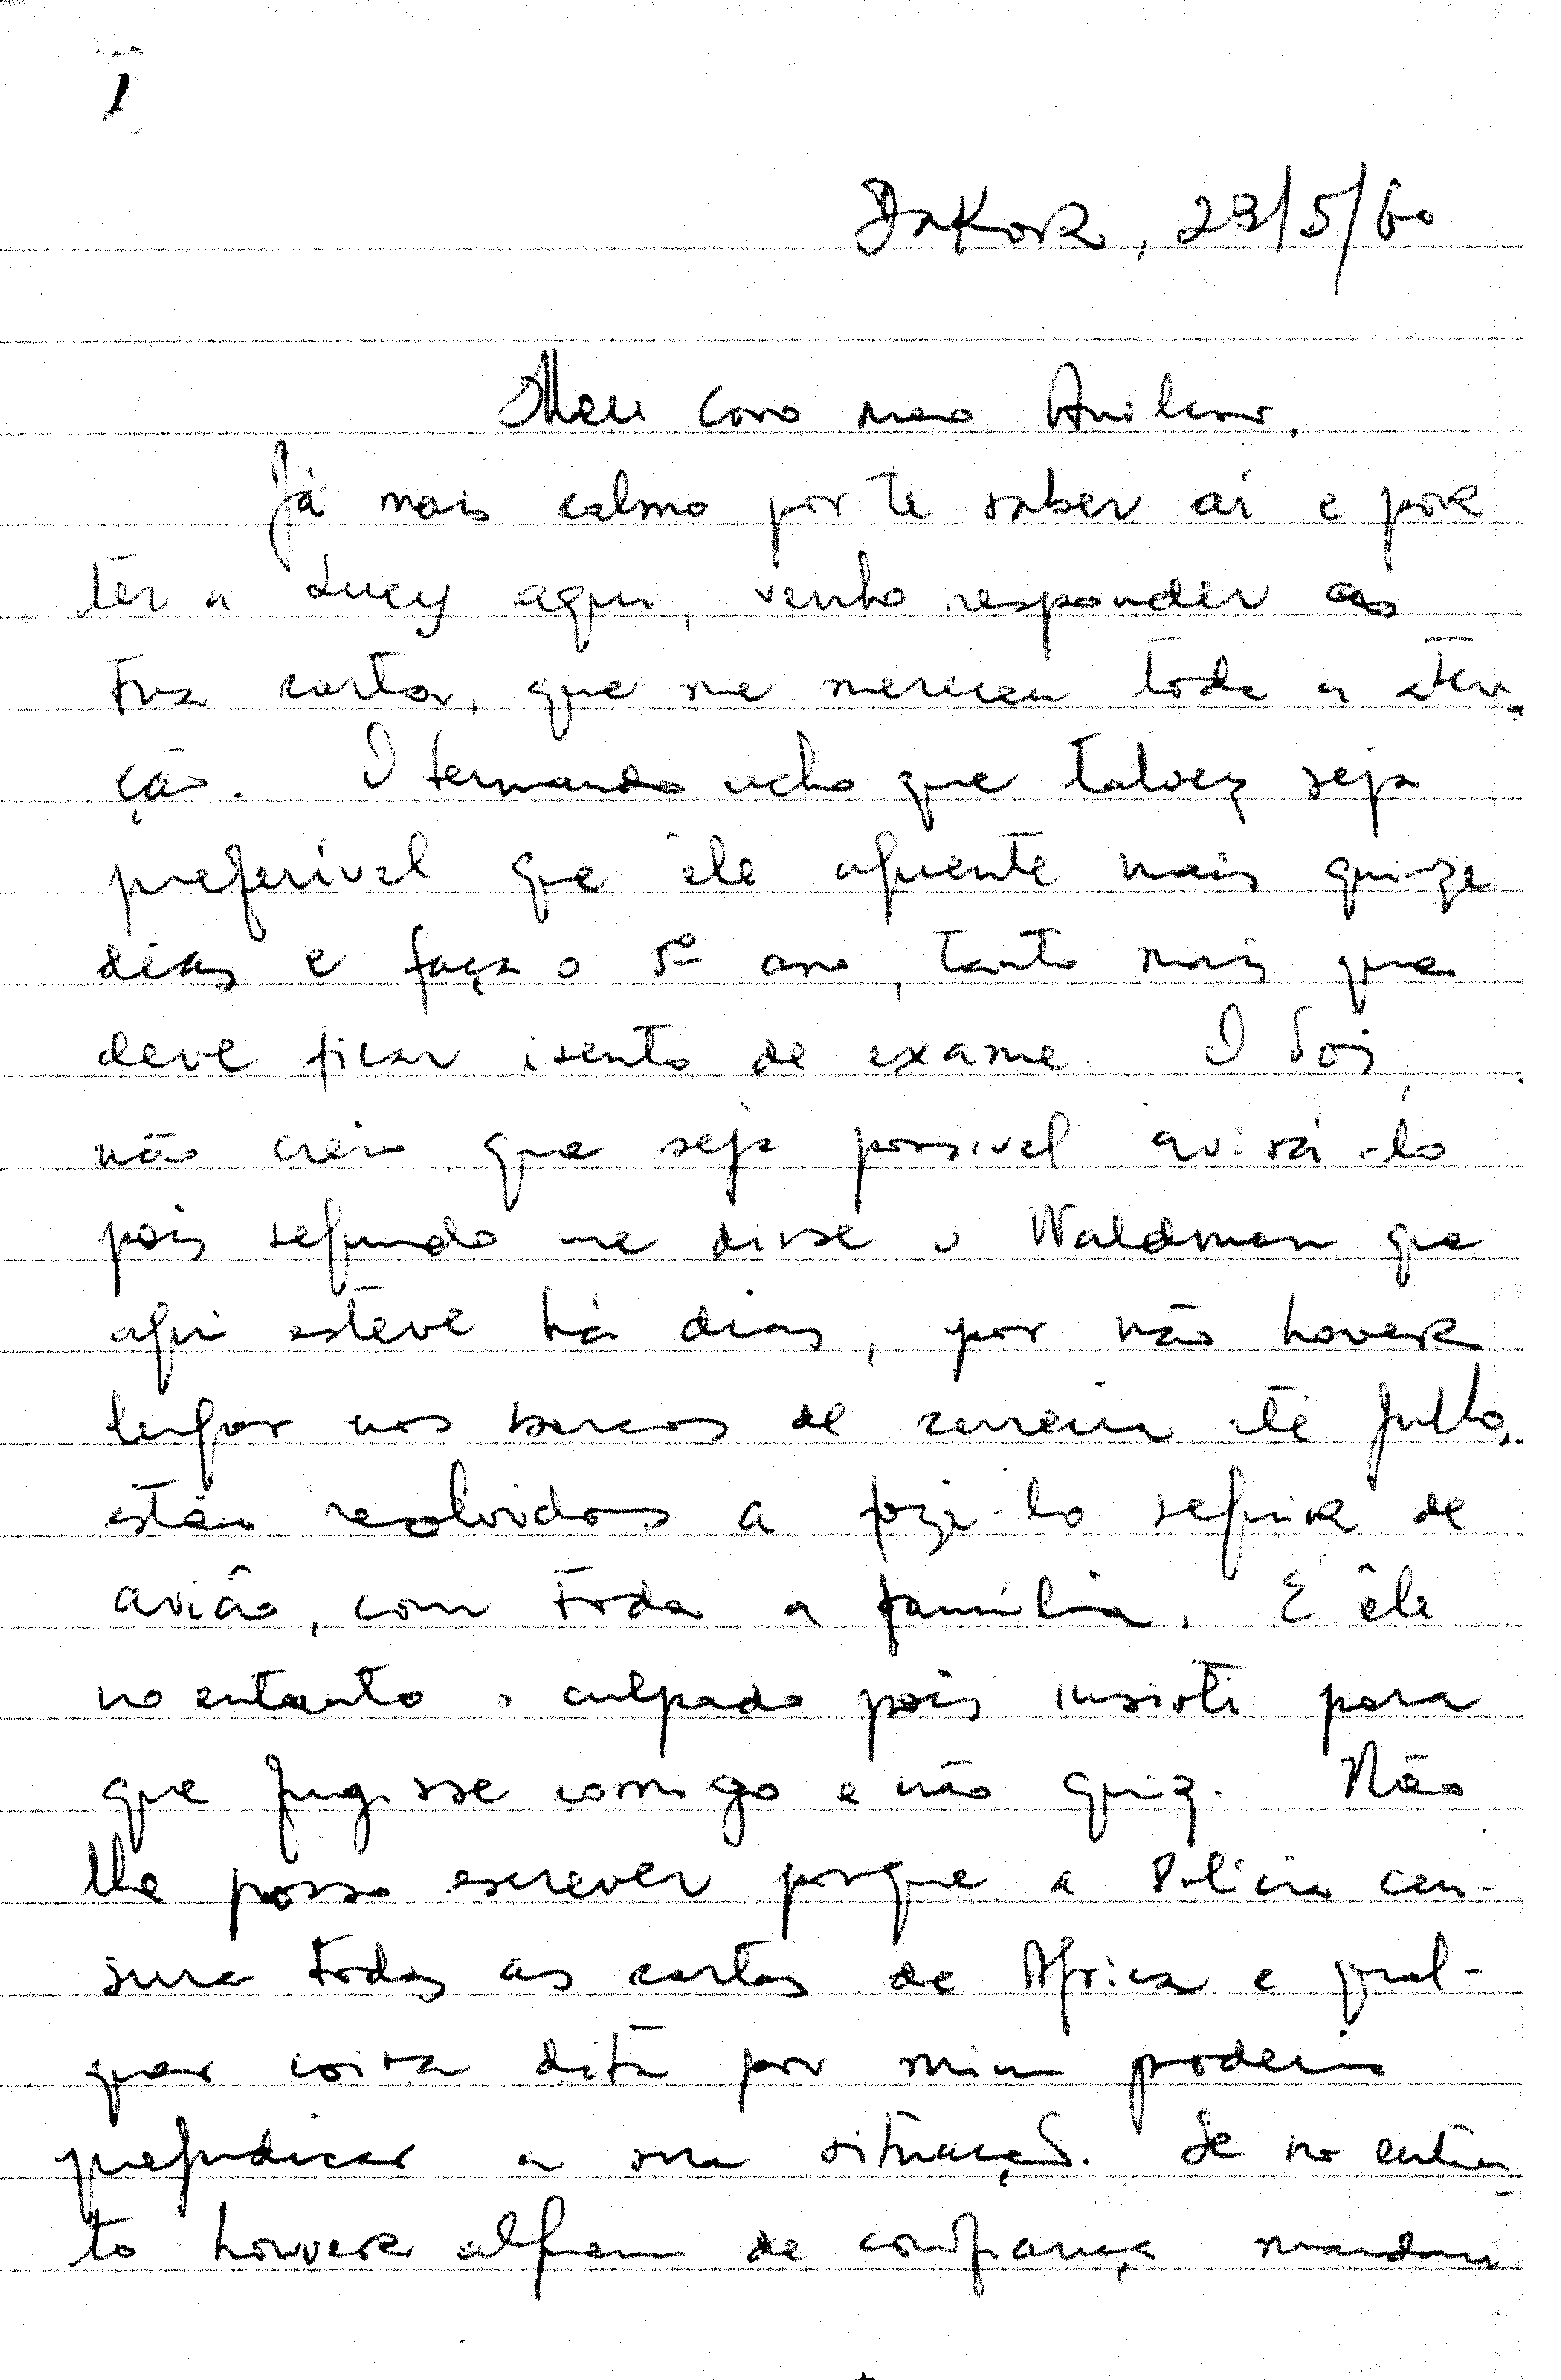 1
Dakar, 29/5/60
Meu caro mano Amilcar,
Já mais calmo por te saber aí e por
ter a Lucy aqui, venho responder às
tua carta, que me mereceu toda a aten-
ção. O Fernando acho que talvez seja
preferível que êle aguente mais quinze
dias e faça o 5º ano, tanto mais que
deve ficar isento de exame. O Toi,
não creio que seja possivel avisá-lo
pois segundo me disse o Waldman que
aqui esteve há dias, por não haver
lugar nos barcos de carreira até Julho,
estão resolvidos a fazê-lo seguir de
avião, com toda a família. É êle
no entanto o culpado pois insisti para
que fugisse comigo e não quiz. Não
lhe posso escrever porque a Policia cen-
sura todas as cartas de Africa e qual-
quer coisa dita por mim poderia
prejudicar a sua situação. Se no entan-
to houver alguem de confiança mandem